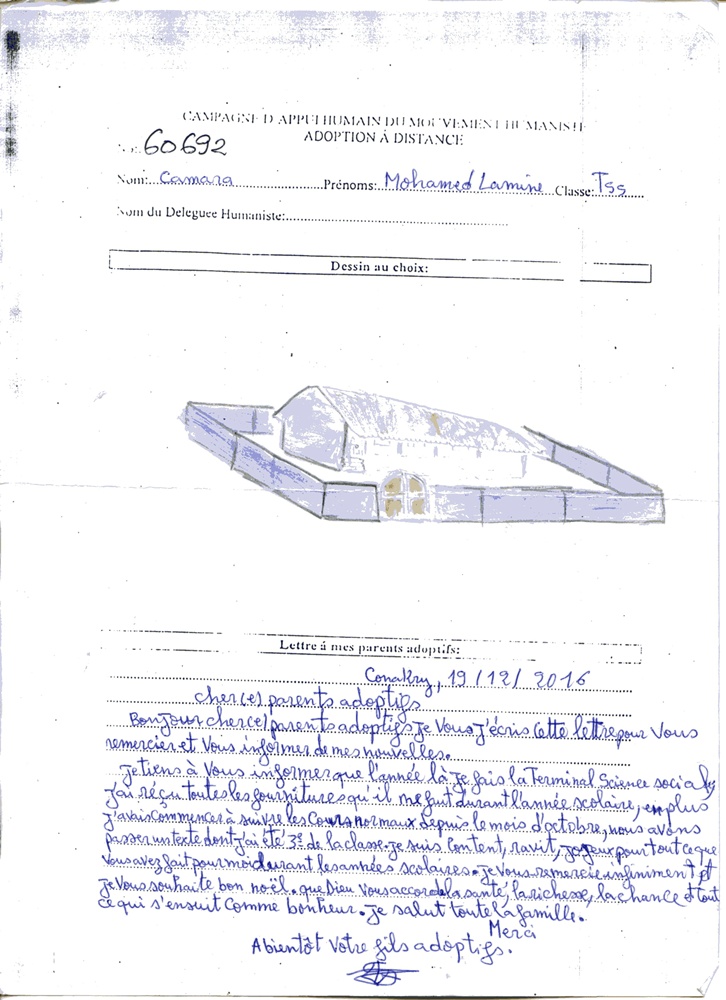 CAMPAGNE D'APPUI HUMAIN DU MOUVEMENT HUMANISTE
ADOPTION À DISTANCE
60692
Nom: Camara Prénoms: Mohamed Lamine Classe: Tss
Nom du Deleguee Humaniste:
Dessin au choix:
Lettre á mes parents adoptifs:
Conakry, 19/12/2016
cher(e) parents adoptifs
Bonjour cher(e) parents adoptifs je Vous j'écris cette lettre pour Vous
remercier et Vous informer de mes nouvelles.
je tiens à Vous informer que l'année là je fais la Terminal Science social
j'ai réçu toutes les fournitures qu'il me faut durant l'année scolaire, en plus
j'avais commencer à suivre les Cours normaux depuis le mois d'octobre, nous avons
passer un texte dont j'ai été 3e de la classe. je suis Content, ravit, joyeux pour tout ce que
Vous avez fait pour moi durant les années scolaires. je Vous remercie infiniment et
je Vous souhaite bon noël. que Dieu Vous accorde la santé, la richesse, la chance et tout
ce qui s'ensuit Comme bonheur. je salut toute la famille.
Merci
A bientôt Votre fils adoptifs.